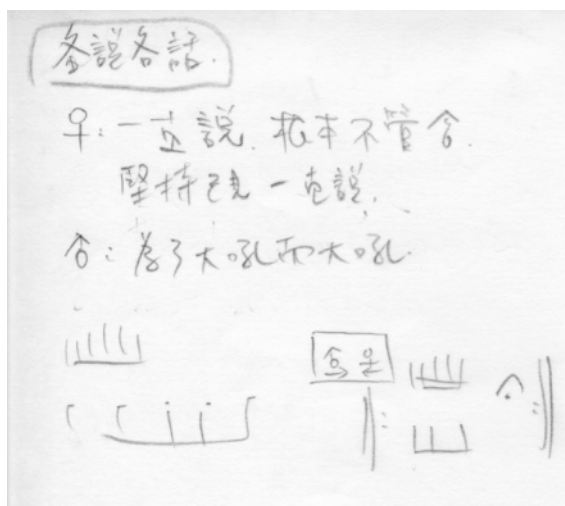 各說各話.
♀: 一直說. 根本不管
堅持己見 一直說.
為了大吼而大吼.